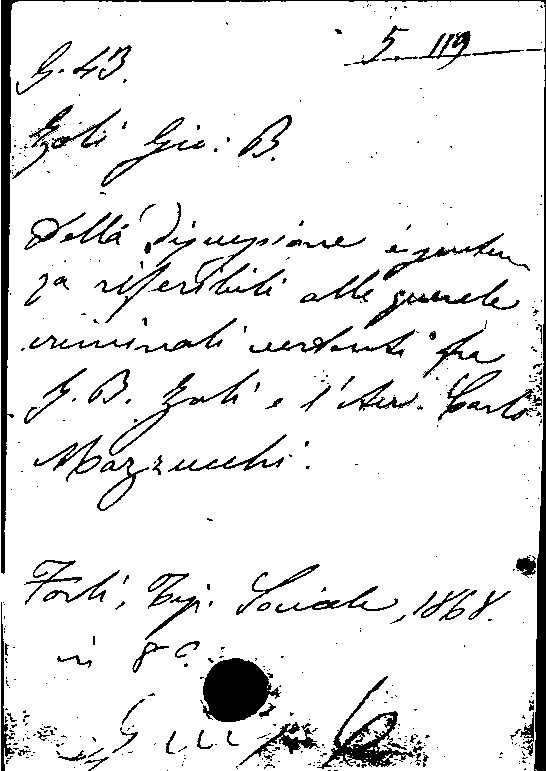 5. 119
G. 43.
Zoli Gio: B.
Della Discussione e senten
za riferibili alle querele
criminali vertenti fra
G. B. Zoli e l'Avv. Carlo
Mazzucchi.
Forlì, Tip. Sociale, 1868.
in 8°.